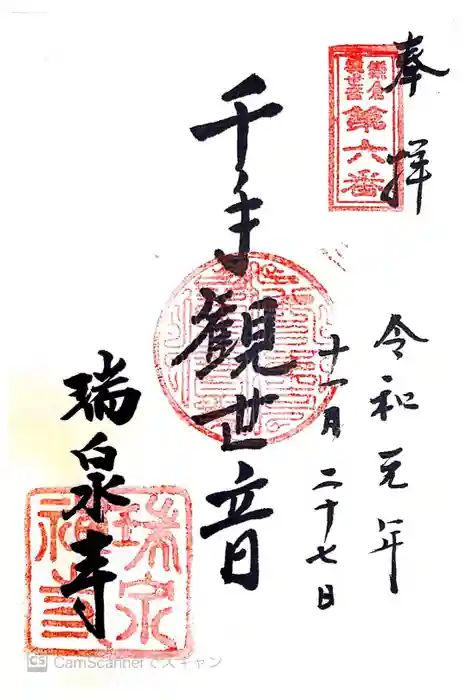 奉拝
鎌倉
観世音
第六番
令和元年
十一月二十七日
千手観世音
瑞泉寺
瑞泉
禅寺
CS CamScannerでスキャン